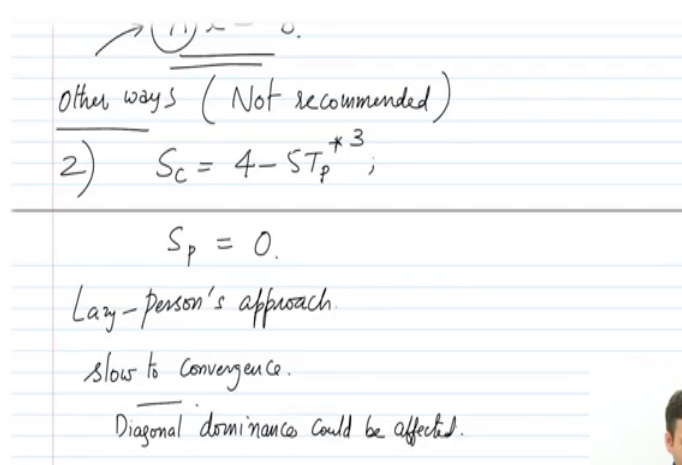 Other ways (Not recommended)
2) Sc = 4 - 5Tp*3;
Sp = 0.
Lazy-person's approach.
slow to convergence.
Diagonal dominance could be affected.